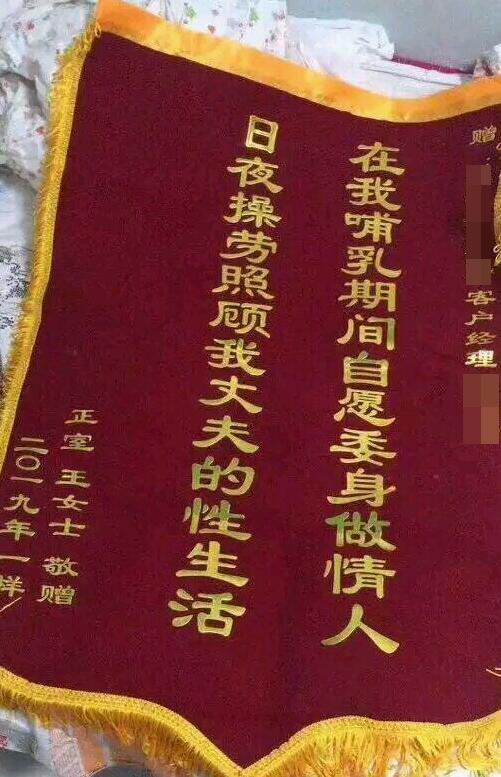 赠
客户经理
在我哺乳期间自愿委身做情人
日夜操劳照顾我丈夫的性生活
正室 王女士 敬赠
二〇一九年一样